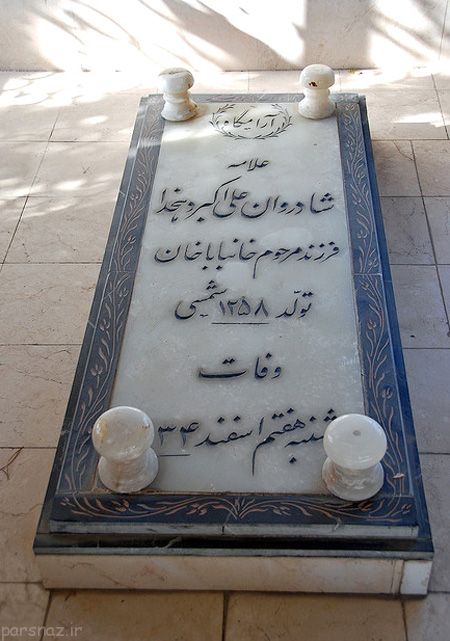 آرامگاه
علامه
شادروان علی اکبر دهخدا
فرزند مرحوم خانباباخان
تولد ۱۲۵۸ شمسی
وفات
شنبه هفتم اسفند ۳۴
parsnaz.ir